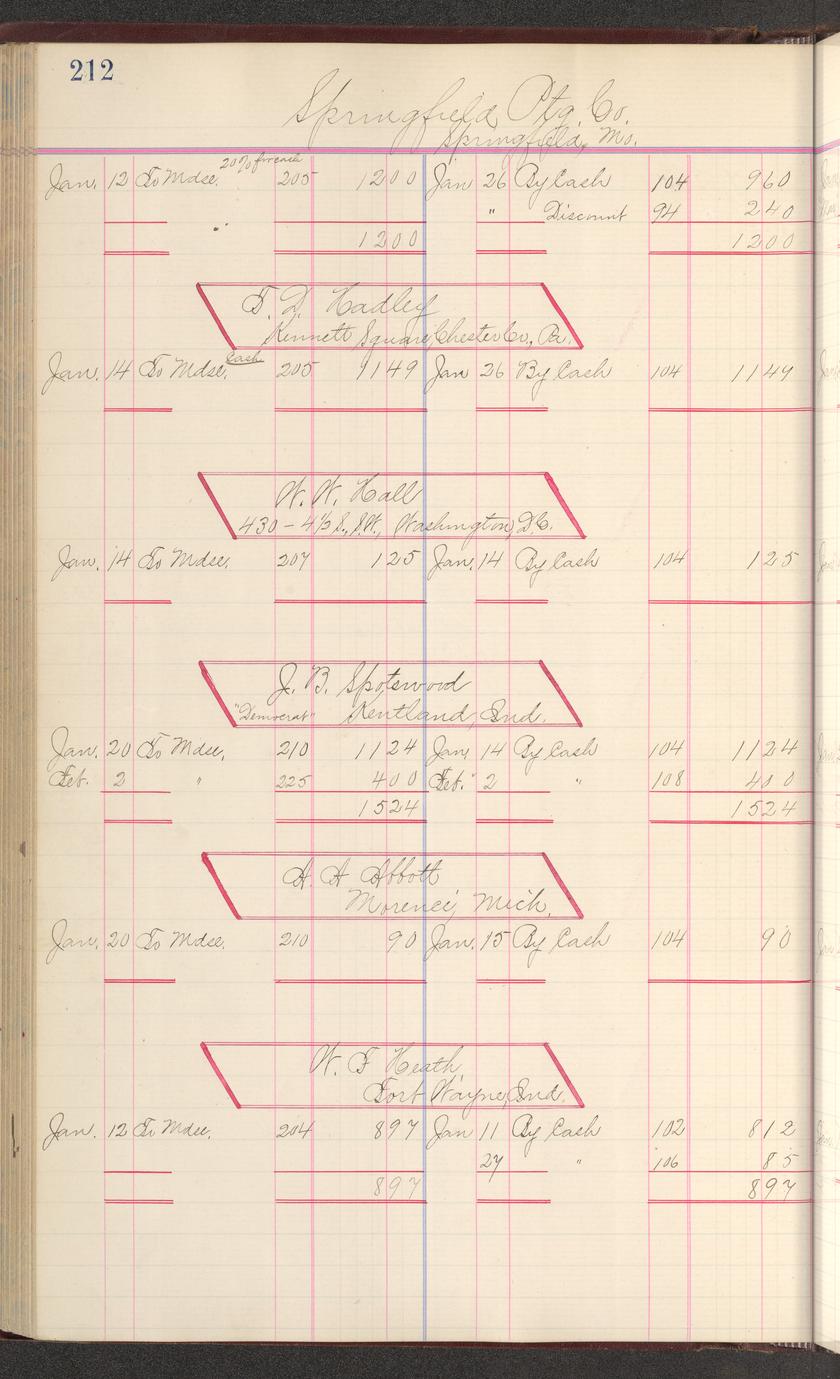 212
Springfield Ptg. Co.
Springfield, Mo.
20% for cash
Jan. 12 To Mdse. 205 1200 Jan 26 By Cash 104 960
" Discount 94 240
1200 1200
Kennett Square, Chester Co., Pa.
T. D. Hadley
Cash
Jan. 14 To Mdse. 205 1149 Jan 26 By Cash 104 1149
W. W. Hall
430 - 4½ S., S.W., Washington, D.C.
Jan. 14 To Mdse. 207 125 Jan. 14 By Cash 104 125
J. B. Spotswood
"Democrat" Kentland, Ind.
Jan. 20 To Mdse. 210 1124 Jan. 14 By Cash 104 1124
Feb. 2 " 225 400 Feb. 2 " 108 400
1524 1524
A. A Abbott
Morenci, Mich.
Jan. 20 To Mdse. 210 90 Jan. 15 By Cash 104 90
W. F Heath,
Fort Wayne, Ind.
Jan. 12 To Mdse. 204 897 Jan 11 By Cash 102 812
27 " 106 85
897 897